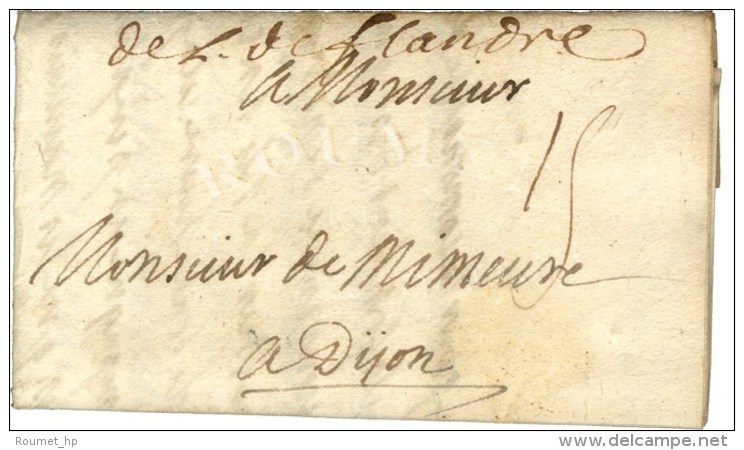 de L. de flandre
a Monsieur
15
Monsieur de Mimeure
a Dijon
ROUMET
Roumet_hp
delcampe.net